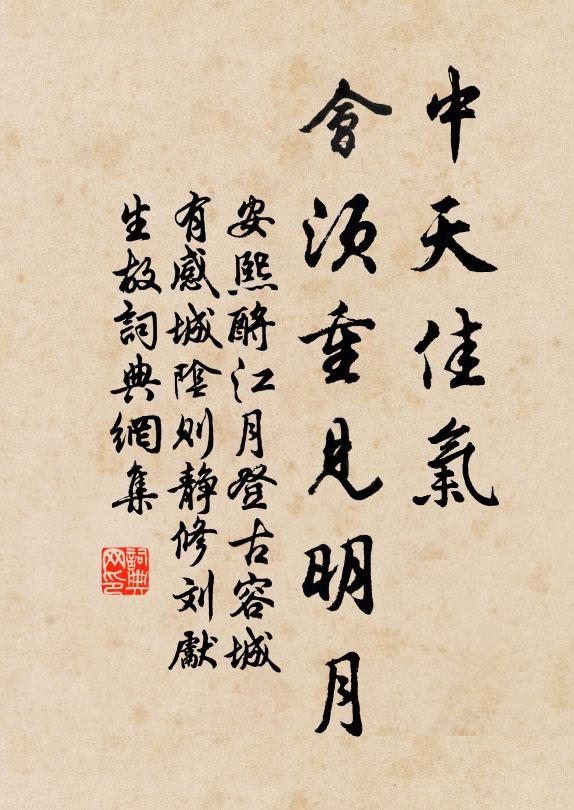 中天佳氣
會須重見明月
安熙酹江月登古容城
有感城陰则靜修刘獻
生故詞典網集
詞典网印